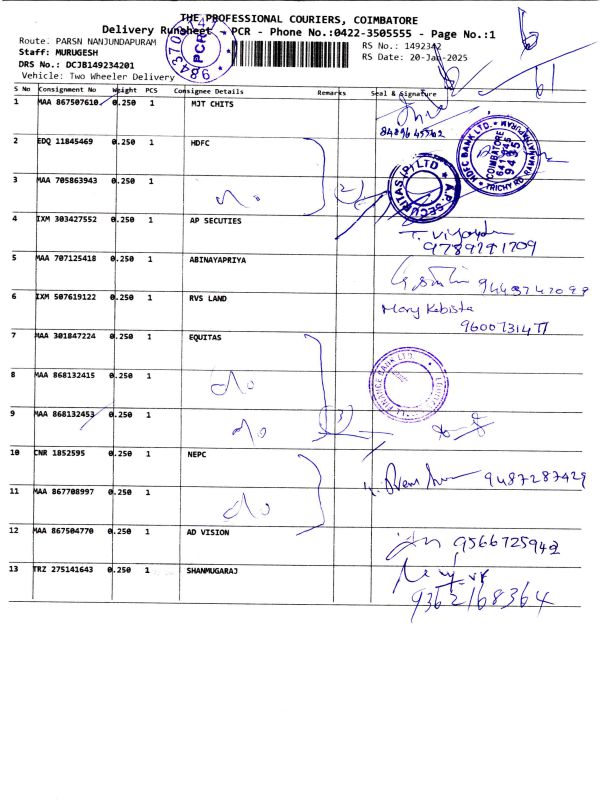 THE PROFESSIONAL COURIERS, COIMBATORE
Delivery Runsheet - PCR - Phone No.:0422-3505555 - Page No.:1
Route: PARSN NANJUNDAPURAM
RS No.: 1492342
Staff: MURUGESH
RS Date: 20-Jan-2025
DRS No.: DCJB149234201
Vehicle: Two Wheeler Delivery
PCR
S No Consignment No Weight PCS Consignee Details Remarks Seal & Signature
1 MAA 867507610 0.250 1 MJT CHITS
2 EDQ 11845469 0.250 1 HDFC
HDFC BANK LTD.
COIMBATORE
641 045
9435
TRICHY RD. RAMANATHAPURAM
3 MAA 705863943 0.250 1 (2)
A.P. SECURITAS (P) LTD
4 IXM 303427552 0.250 1 AP SECUTIES
9789791709
5 MAA 707125418 0.250 1 ABINAYAPRIYA
6 IXM 507619122 0.250 1 RVS LAND Mary Kabista
9600731477
7 MAA 301847224 0.250 1 EQUITAS
8 MAA 868132415 0.250 1
FINANCE BANK LTD.
9 MAA 868132453 0.250 1 (3)
10 CNR 1852595 0.250 1 NEPC
9487287429
11 MAA 867708997 0.250 1
12 MAA 867504770 0.250 1 AD VISION
9566725942
13 TRZ 275141643 0.250 1 SHANMUGARAJ
9362168364